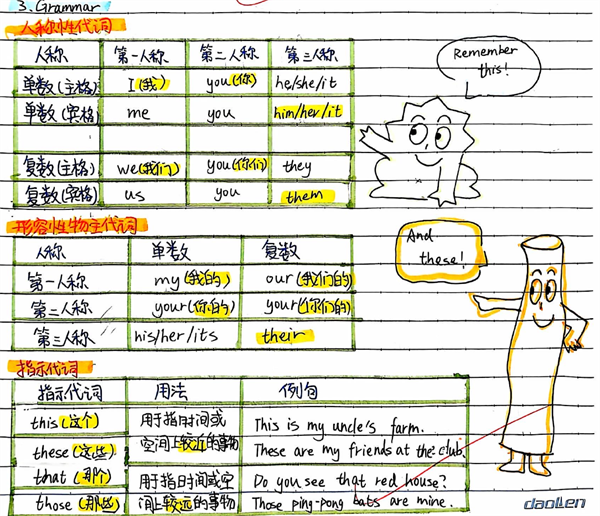 3. Grammar
人称性代词
人称 第一人称 第二人称 第三人称
单数(主格) I(我) you(你) he/she/it
单数(宾格) me you him/her/it
复数(主格) we(我们) you(你们) they
复数(宾格) us you them
Remember
this!
形容性物主代词
人称 单数 复数
第一人称 my(我的) our(我们的)
第二人称 your(你的) your(你们的)
第三人称 his/her/its their
And
these!
指示代词
指示代词 用法 例句
this(这个) 用于指时间或 This is my uncle's farm.
these(这些) 空间上较近的事物 These are my friends at the club.
that(那个) 用于指时间或空 Do you see that red house?
those(那些) 间上较远的事物 Those ping-pong bats are mine.
daollen